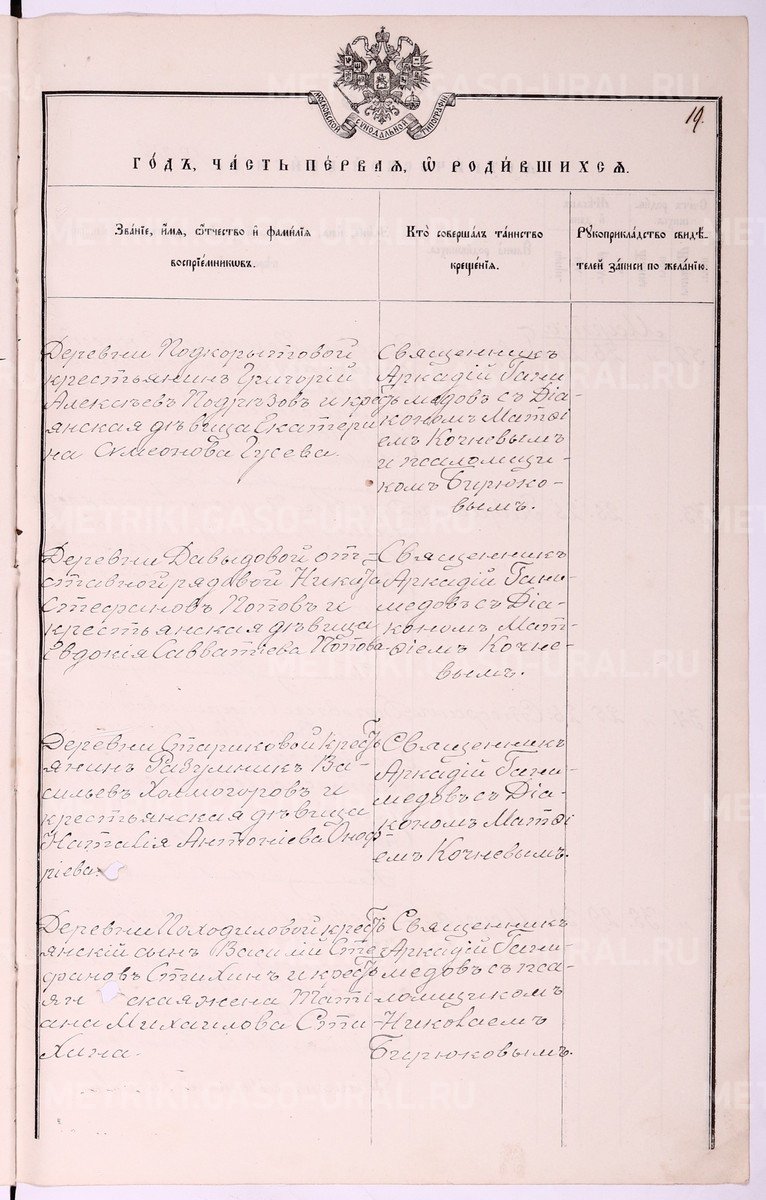 МОСКОВСКОЙ СѴНОДАЛЬНОЙ ТИПОГРАФІИ
19.
ГО́ДЪ, ЧА́СТЬ ПЕ́РВАѦ, Ѡ҆ РОДИ́ВШИХСѦ.
Зва́нїе, и҆́мѧ, ѻ҆́тчество и҆ фами́лїѧ
воспрїе́мникѡвъ.
Кто̀ соверша́лъ та́инство
креще́нїѧ.
Рꙋкоприкла́дство свидѣ́-
телей за́писи по жела́нїю.
Деревни Подкорытовой
крестьянинъ Григорій
Алексѣевъ Подрѣзовъ и кресть
янская дѣвица Екатери
на Сѵмеонова Гусева.
Священникъ
Аркадій Гани
медовъ съ Діа-
кономъ Матѳі
емъ Кочневымъ
и псаломщи-
комъ Бирюко-
вымъ.
Деревни Давыдовой от=
ставной рядовой Никита
Стефановъ Поповъ и
крестьянская дѣвица
Евдокія Савватіева Попова
Священникъ
Аркадій Гани-
медовъ съ Діа-
кономъ Мат-
ѳіемъ Кочне-
вымъ.
Деревни Стариковой кресть
янинъ Разумникъ Ва-
сильевъ Холмогоровъ и
крестьянская дѣвица
Наталія Антоніева Оноф-
ріева.
Священникъ
Аркадій Гани-
медовъ съ Діа-
кономъ Матѳі
емъ Кочневымъ.
Деревни Походиловой кресть
янскій сынъ Василій Сте
фановъ Стихинъ и кресть
ян ская жена Тати
ана Михаилова Сти
хина.
Священникъ
Аркадій Гани-
медовъ съ пса-
ломщикомъ
Николаемъ
Бирюковымъ.
METRIKI.GASO-URAL.RU